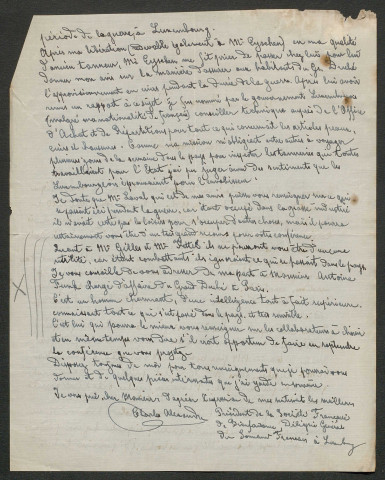 période de la guerre à Luxembourg.
Après ma libération (renouvelle également à Mr Eyschen) en ma qualité
d'ancien tanneur, Mr Eyschen me fit prier de passer chez lui pour lui
donner mon avis sur la manière d'assurer aux habitants du Gd Duché
l'approvisionnement en cuirs pendant la durée de la guerre. Après lui avoir
remis un rapport à ce sujet je fus nommé par le gouvernement Luxembourgeois
(malgré ma nationalité de français) conseiller technique auprès de l'Office
d'Achat et de Répartition pour tout ce qui concernait les articles peaux,
cuirs et chaussures. Comme ma mission m'obligeait entre autres à voyager
plusieurs jours de la semaine dans le pays pour inspecter les tanneries qui toutes
travaillaient pour l'Etat j'ai pu juger des sentiments que les
Luxembourgeois éprouvaient pour l'envahisseur.
Je doute que Mr Laval qui est de mes amis puisse vous renseigner sur ce qui
se passait ici pendant la guerre, car étant occupé dans la grosse industrie
il n'avait certes pas le loisir pour s'occuper d'autre chose, mais il pourra
certainement vous être d'un très grand secours pour votre conférence.
Quant à Mr Gilles et Mr ils ne pourraient vous être d'aucune
utilité, car étant combattants ils ignoraient ce qui se passait dans le pays.
Je vous conseille de vous adresser de ma part à Monsieur Antoine
Funck chargé d'affaires du Grand Duché à Paris.
C'est un homme charmant, d'une intelligence tout à fait supérieure,
connaissant tout ce qui s'est passé dans le pays, et très sensible.
C'est lui qui pourra le mieux vous renseigner sur les collaborations à choisir
et en même temps vous dire s'il serait opportun de faire en septembre
la conférence que vous projetez.
Disposez toujours de moi pour tous renseignements que je pourrais vous
donner et de quelques pièces intéressantes que j'ai gardé
Je vous prie, cher Monsieur d'agréer l'expression de mes sentiments les meilleurs
Charles Alexandre Président de la Société Française
de Bienfaisance, Délégué Général
du Souvenir Français à Luxbg